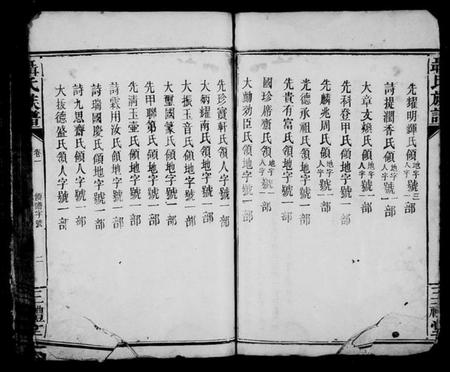 聶氏族譜
先耀明輝氏領地字人字號一二部
詩提潤香氏領地字人字號一部
大章支煥氏領地字人字號一部
先科登甲氏領地字號一部
先麟兆周氏領地字人字號一部
光德承祖氏領地字號一部
先貴有富氏領人字號一部
國珍席齋氏領地字人字號一部
大勳劝臣氏領地字號一部
先珍寶軒氏領人字號一部
大炳耀南氏領地字號一部
大振玉音氏領地字號一部
大璽國篆氏領地字號一部
先甲聯第氏領地字號一部
先清玉壷氏領地字號一部
詩霖用汝氏領地字號一部
詩瑞國慶氏領地字號一部
詩九思齋氏領人字號一部
大振德盛氏領人字號一部
聶氏族譜
卷
領譜字號
二
三禮堂